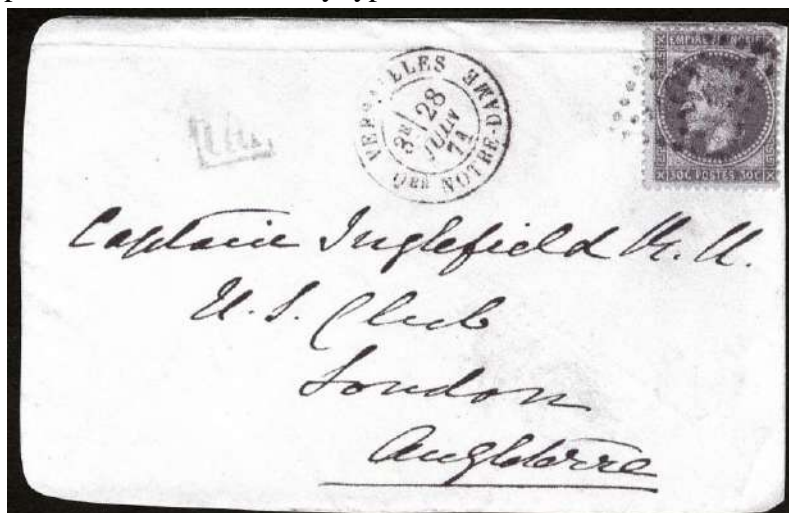 VERSAILLES
3E
28
JUIN
71
QER NOTRE-DAME
30C POSTES 30C
Captain Inglefield R. N.
U. S. Club
London
Angleterre